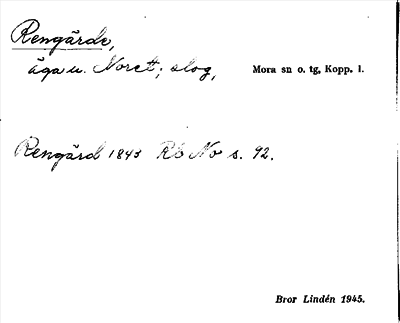 Rengärde,
äga u. Noret; skog, Mora sn o. tg, Kopp. l.
Rengärd 1843 Rb No s. 92.
Bror Lindén 1945.